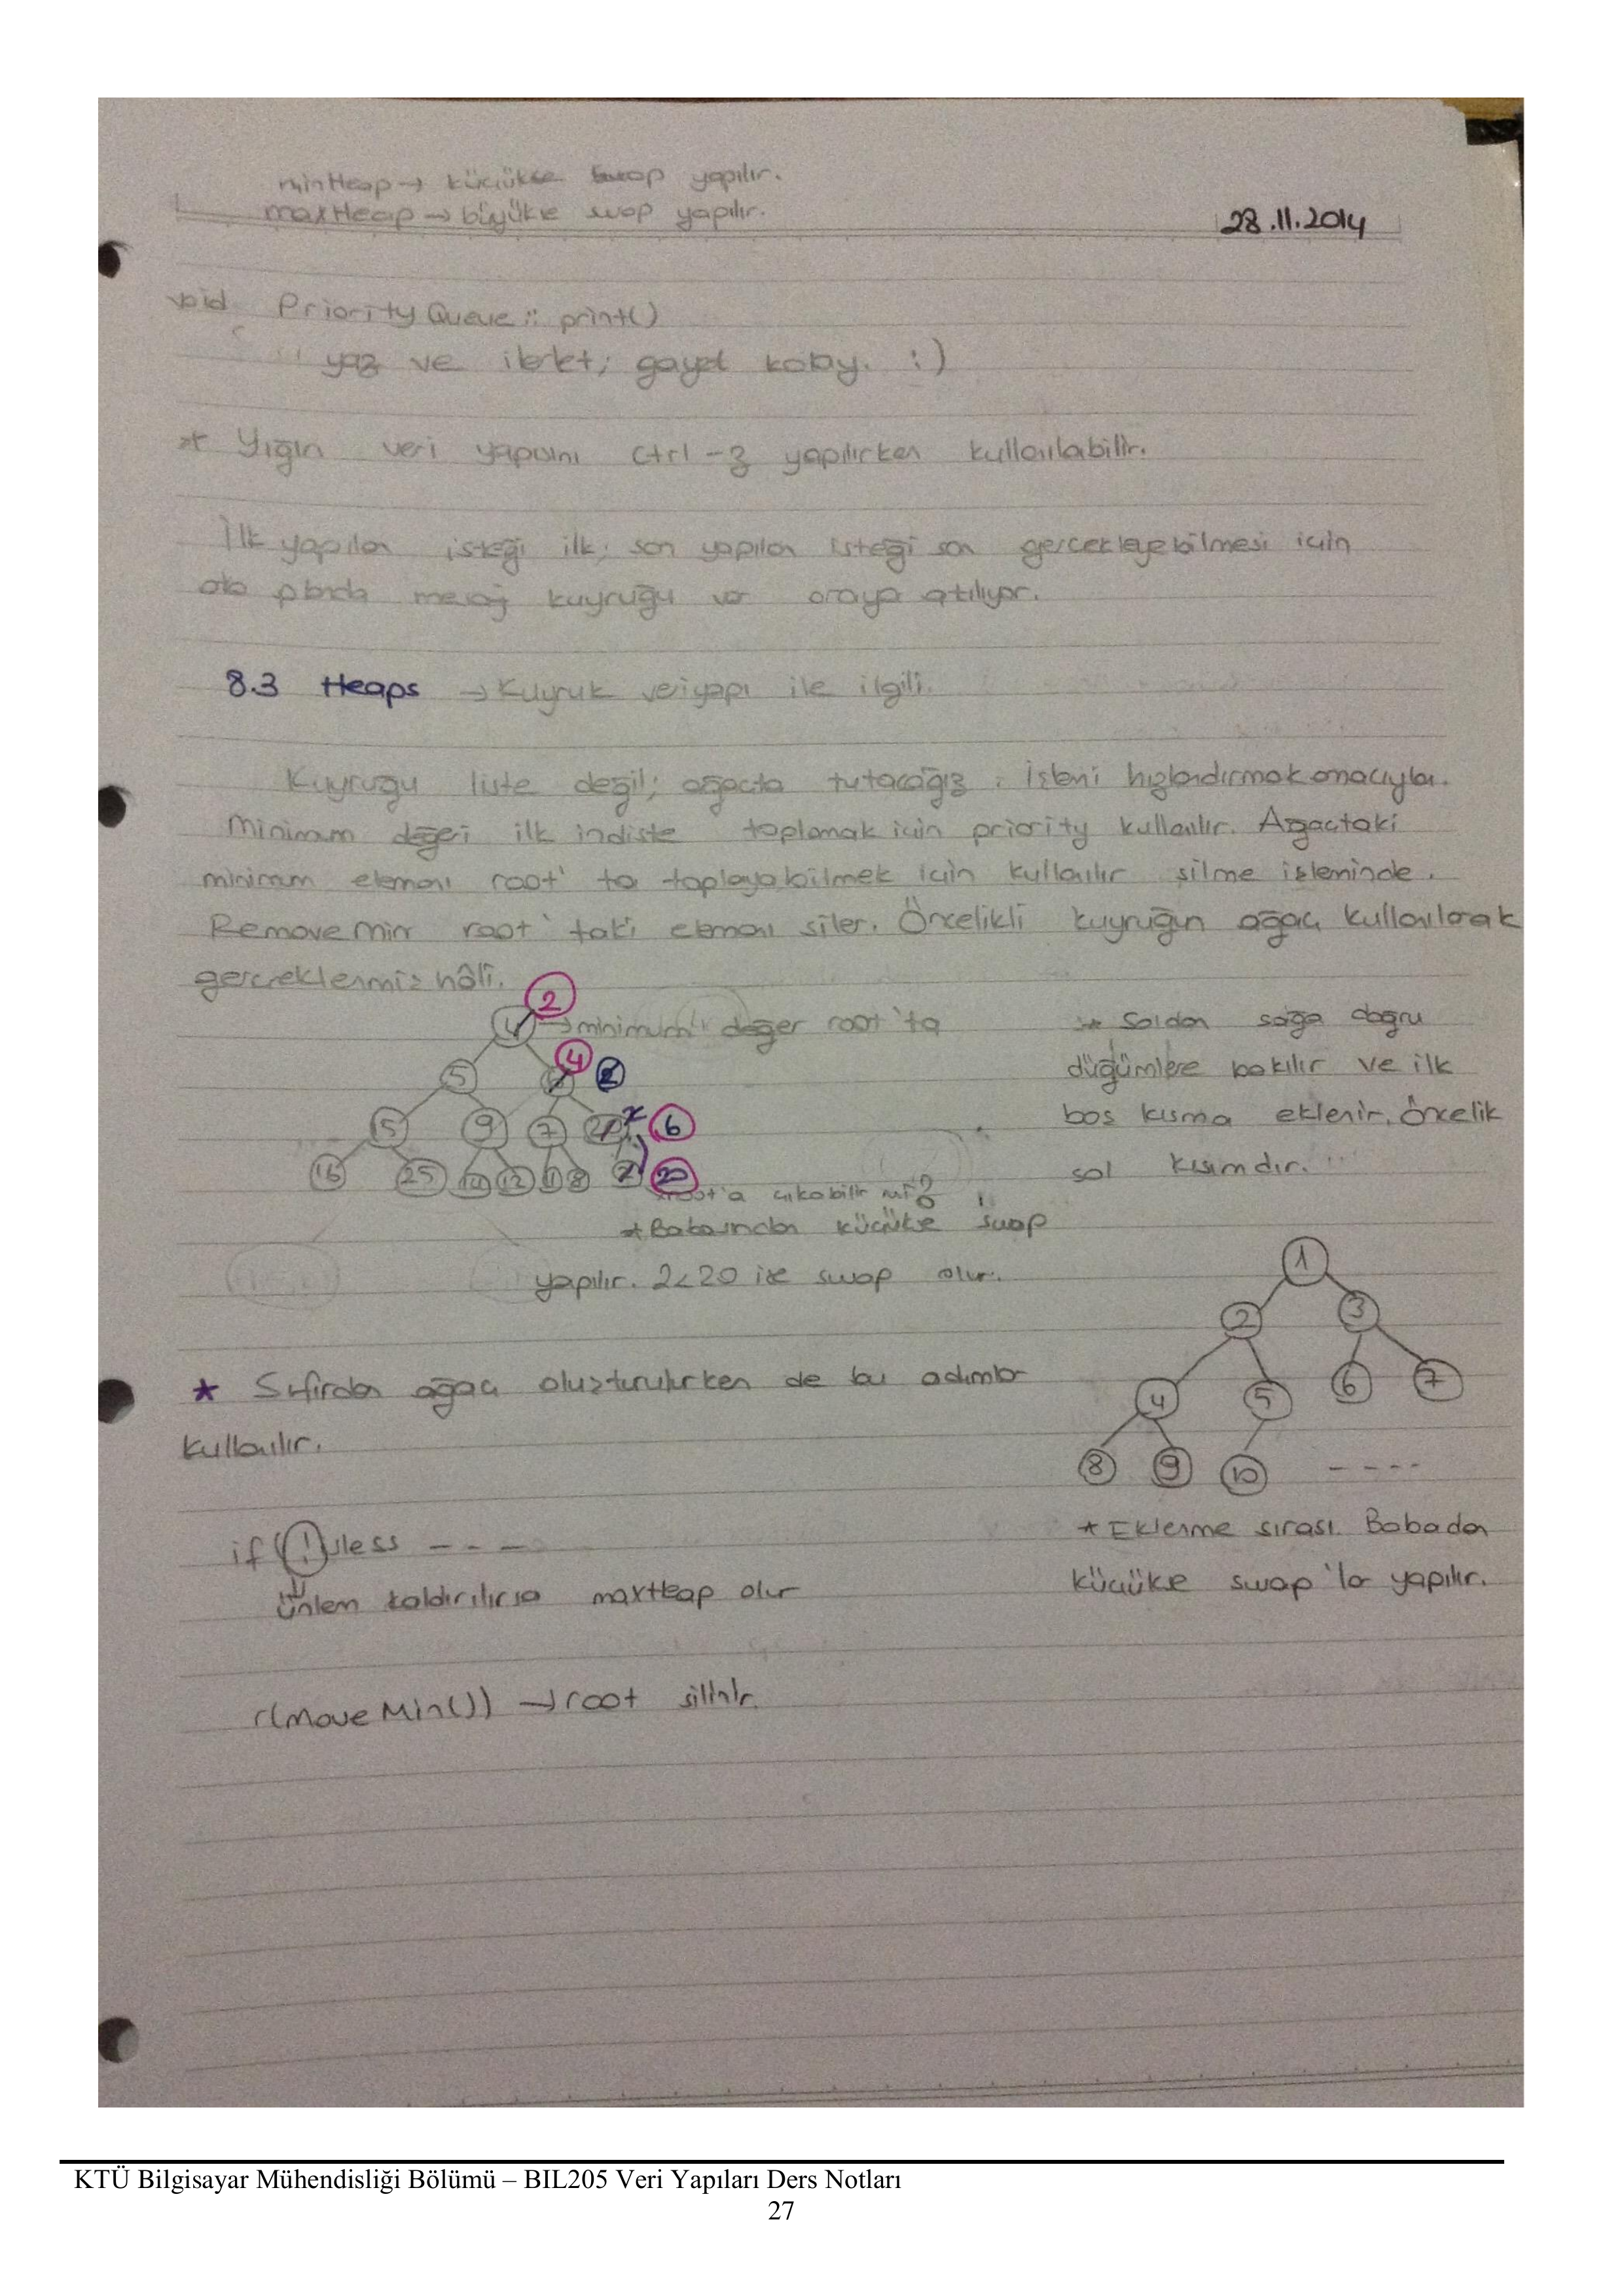 minHeap → küçükse swap yapılır.
maxHeap → büyükse swap yapılır.
28.11.2014
void PriorityQueue :: print()
yaz ve ilerlet; gayet kolay. :)
* Yığın veri yapısını Ctrl-z yapılırken kullanılabilir.
İlk yapılan isteği ilk, son yapılan isteği son gerçekleyebilmesi için
arka planda mesaj kuyruğu var oraya atılıyor.
8.3 Heaps → Kuyruk veriyapı ile ilgili.
Kuyruğu liste değil; ağaçta tutacağız. İşlemi hızlandırmak amacıyla.
Minimum değeri ilk indiste toplamak için priority kullanılır. Ağaçtaki
minimum elemanı root'ta toplayabilmek için kullanılır silme işleminde.
RemoveMin root'taki elemanı siler. Öncelikli kuyruğun ağaç kullanılarak
gerçeklenmiş hâli.
2
4 → minimum değer root'ta
4 2
5 6
15 9 7 20 6
16 25 14 12 11 8 2 20
root'a çıkabilir mi?
* Babasından küçükse swap
yapılır. 2<20 ise swap olur.
* Soldan sağa doğru
düğümlere bakılır ve ilk
boş kısma eklenir. Öncelik
sol kısımdır.
1
2 3
4 5 6 7
8 9 10 - - - -
* Eklenme sırası. Babadan
küçükse swap'lar yapılır.
* Sıfırdan ağaç oluşturulurken de bu adımlar
kullanılır.
if (!isless - - -
ünlem kaldırılırsa maxHeap olur
r(moveMin()) → root silinir.
KTÜ Bilgisayar Mühendisliği Bölümü – BIL205 Veri Yapıları Ders Notları
27